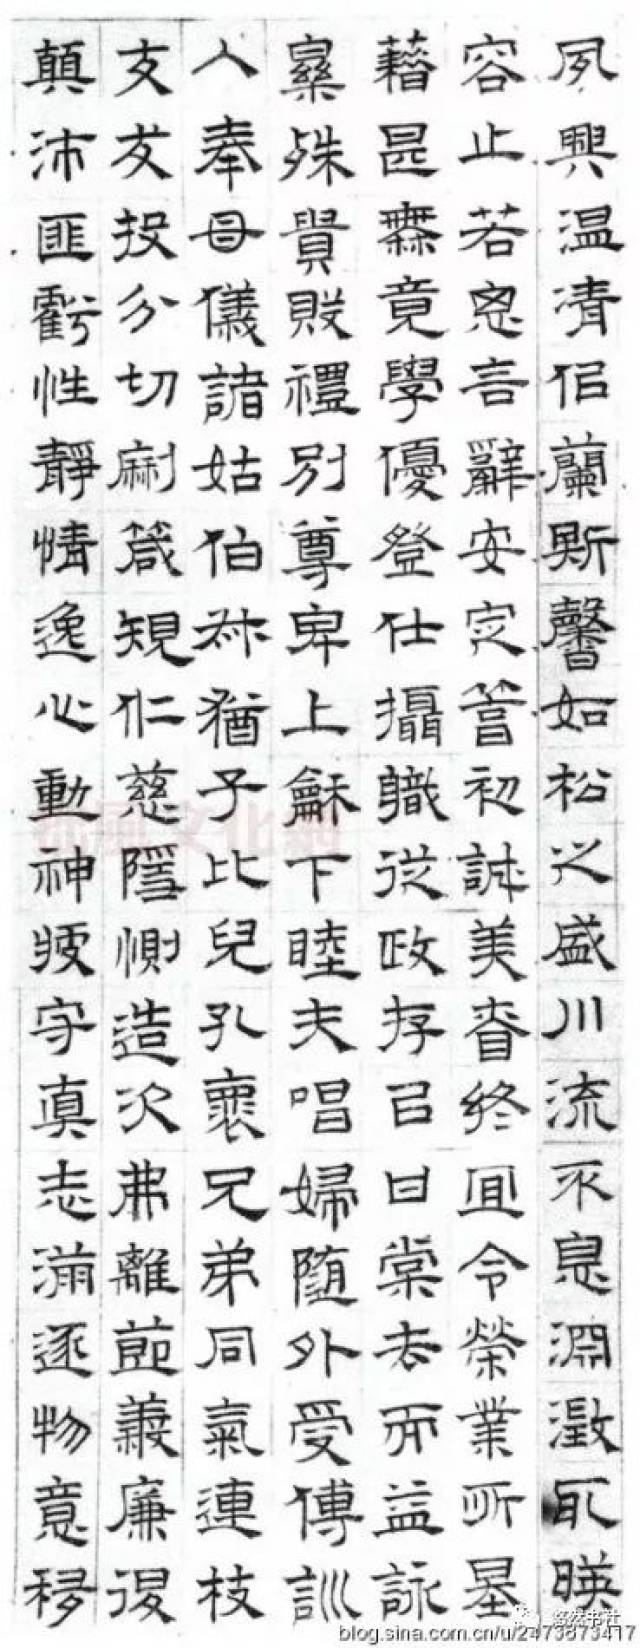 夙興温清佀蘭斯馨如松之盛川流不息淵澂取暎
容止若思言辭安定篤初誠美昚終宜令榮業所基
藉甚無竟學優登仕攝職從政存㠯甘棠去而益詠
樂殊貴賤禮別尊卑上龢下睦夫唱婦隨外受傅訓
入奉母儀諸姑伯叔猶子比兒孔褱兄弟同氣連枝
交友投分切劘箴規仁慈隱惻造次弗離節義廉退
顛沛匪虧性靜情逸心動神疲守真志滿逐物意移
悠然书社
blog.sina.com.cn/u/2473873417